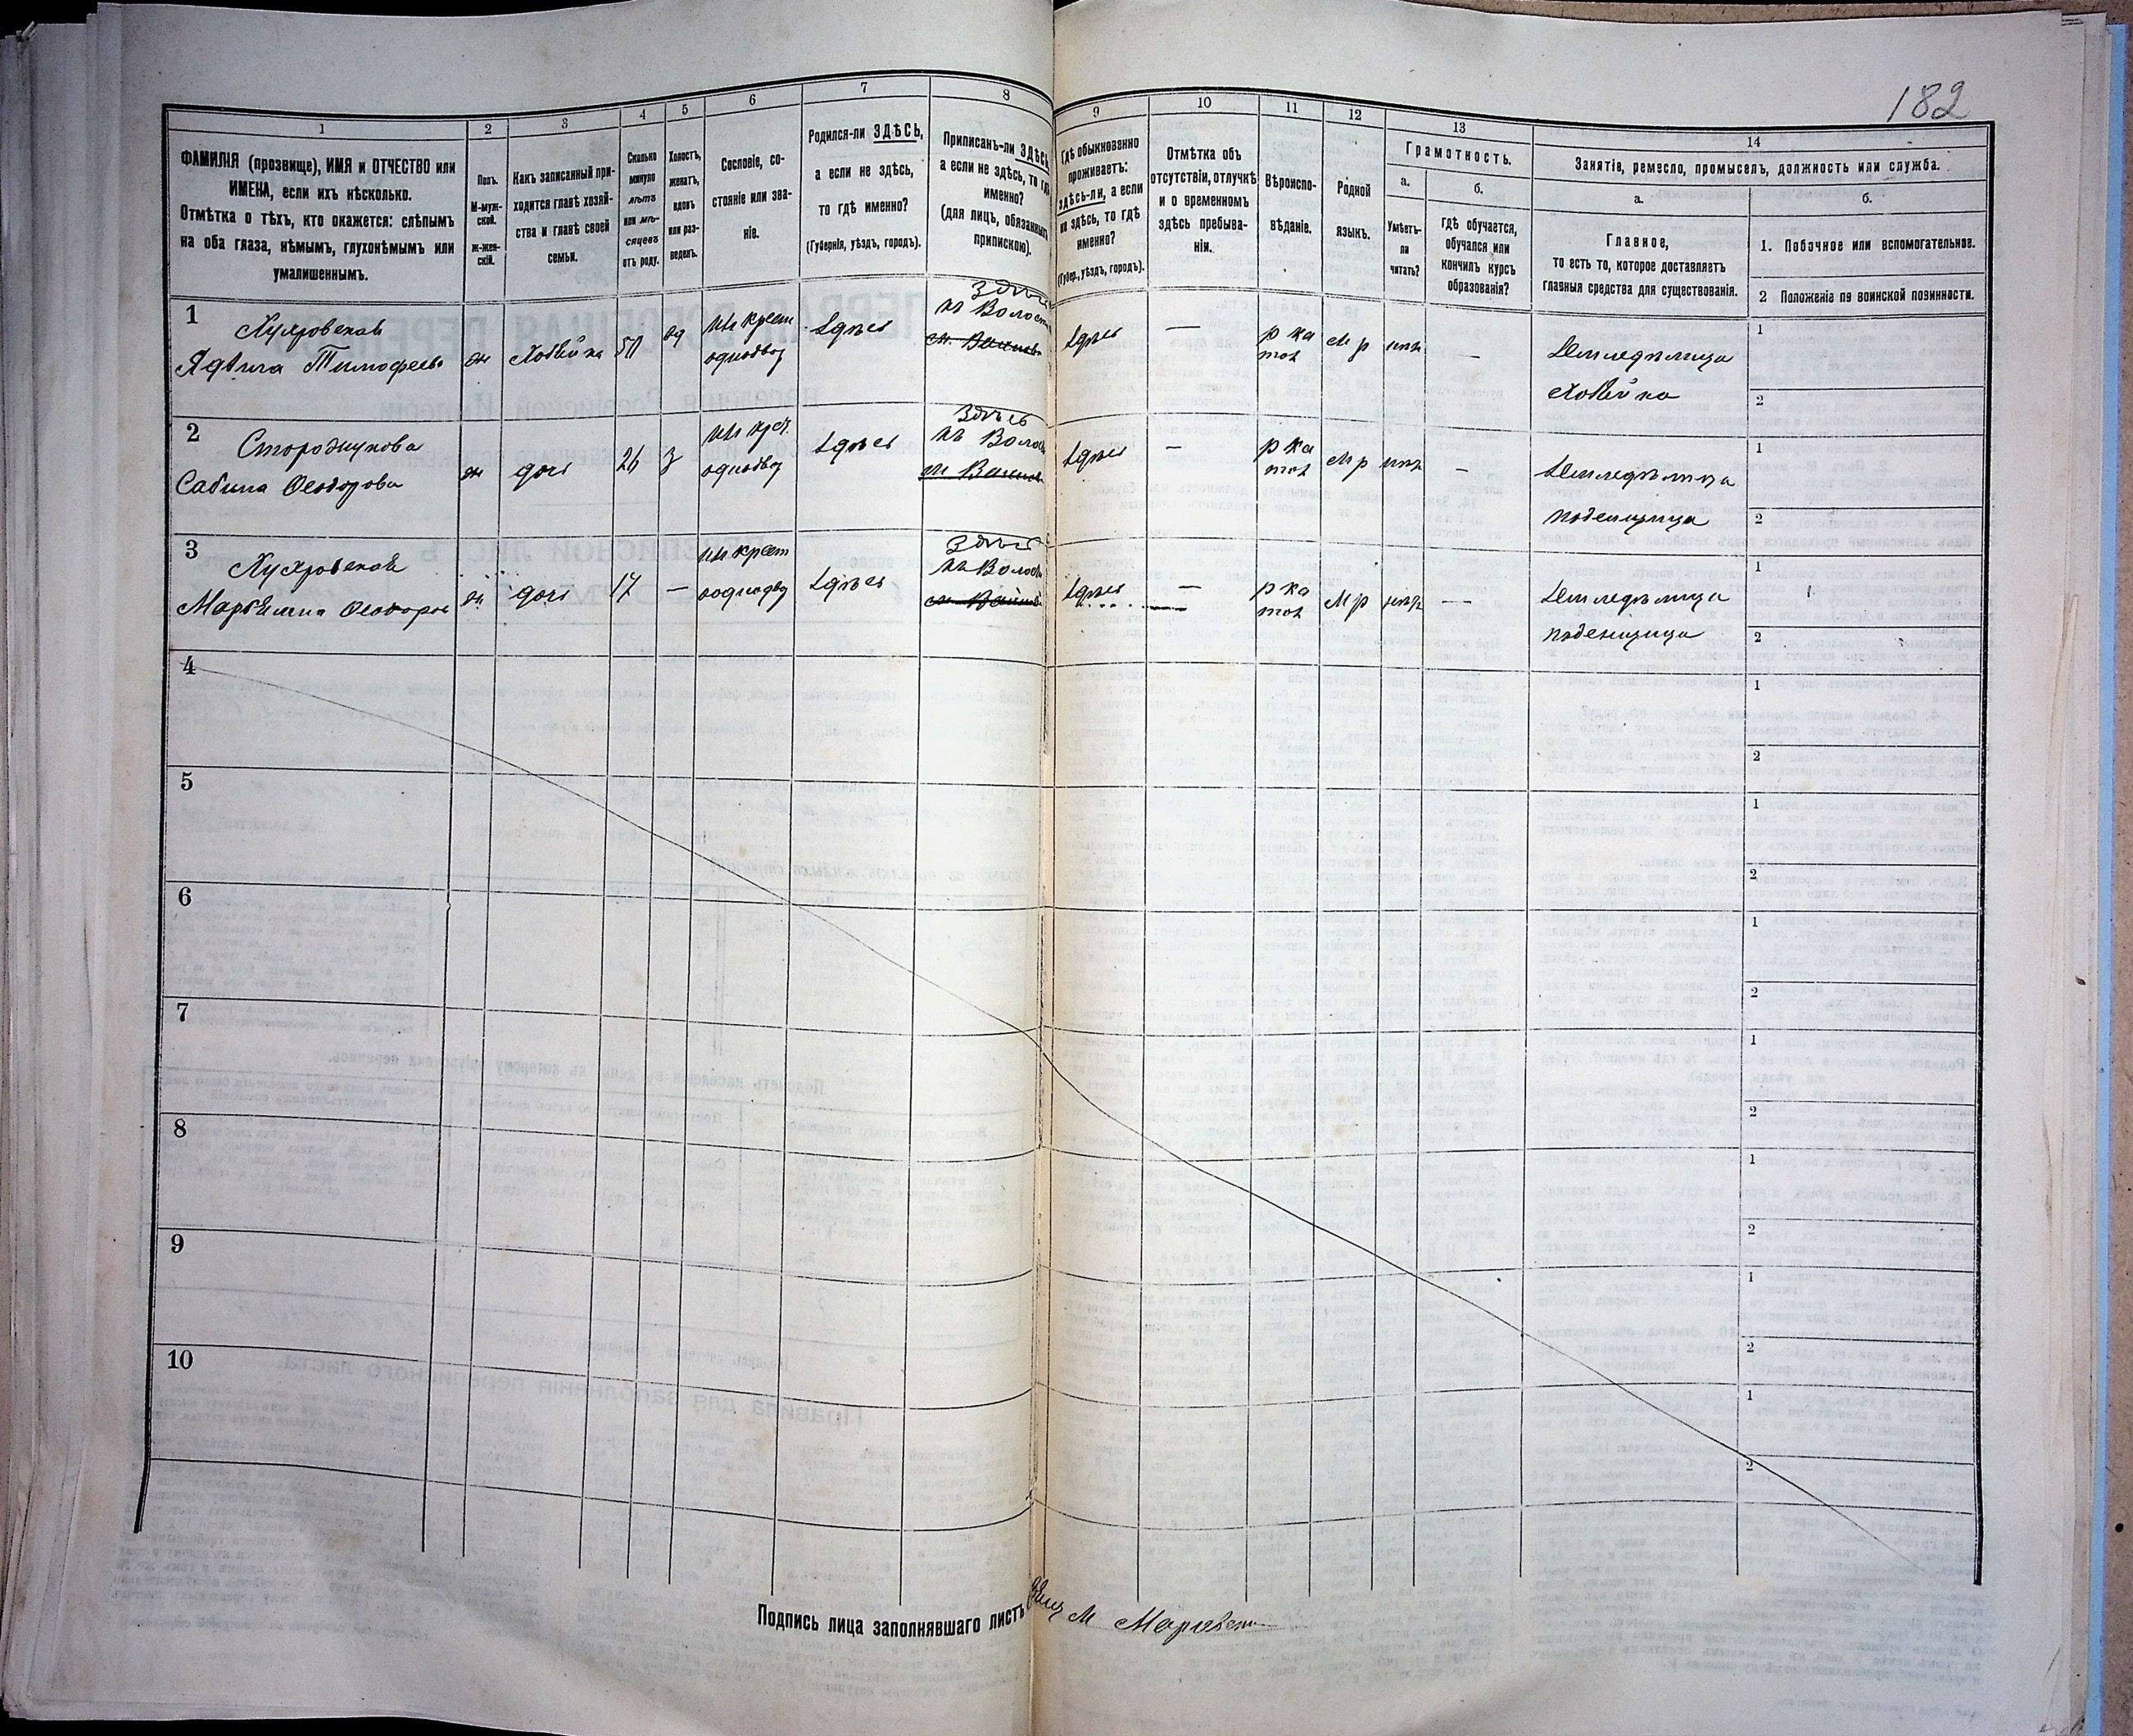 182
1
2
3
4
5
6
7
8
9
10
11
12
13
14
ФАМИЛІЯ (прозвище), ИМЯ и ОТЧЕСТВО или
ИМЕНА, если ихъ нѣсколько.
Отмѣтка о тѣхъ, кто окажется: слѣпымъ
на оба глаза, нѣмымъ, глухонѣмымъ или
умалишеннымъ.
Полъ.
М-муж-
ской.
Ж-жен-
скій.
Какъ записанный при-
ходится главѣ хозяй-
ства и главѣ своей
семьи.
Сколько
минуло
лѣтъ
или мѣ-
сяцевъ
отъ роду.
Холостъ,
женатъ,
вдовъ
или раз-
веденъ.
Сословіе, со-
стояніе или зва-
ніе.
Родился-ли ЗДѢСЬ,
а если не здѣсь,
то гдѣ именно?
(Губернія, уѣздъ, городъ).
Приписанъ-ли ЗДѢСЬ,
а если не здѣсь, то гдѣ
именно?
(для лицъ, обязанныхъ
припискою).
Гдѣ обыкновенно
проживаетъ:
здѣсь-ли, а если
не здѣсь, то гдѣ
именно?
(Губер., уѣздъ, городъ).
Отмѣтка объ
отсутствіи, отлучкѣ
и о временномъ
здѣсь пребыва-
ніи.
Вѣроиспо-
вѣданіе.
Родной
языкъ.
Грамотность.
а.
Умѣетъ-
ли
читать?
б.
Гдѣ обучается,
обучался или
кончилъ курсъ
образованія?
Занятіе, ремесло, промыселъ, должность или служба.
а.
Главное,
то есть то, которое доставляетъ
главныя средства для существованія.
б.
1. Побочное или вспомогательное.
2 Положеніе по воинской повинности.
1
Ядвига Тимофеев
ж
Хозяйка
50
вд
из крест
однодвор
здѣсь
Здѣсь
здѣсь
—
р ка
тол
нѣт
—
Земледѣлица
Хозяйка
1
2
2
Сторожукова
Сабина Ѳеодорова
ж
дочь
26
з
из крес.
однодвор
здѣсь
Здѣсь
здѣсь
—
р ка
тол
нѣт
—
Земледѣлица
поденщица
1
2
3
Ѳеодоров
ж
дочь
17
—
из крест
однодвор
здѣсь
Здѣсь
здѣсь
—
р ка
тол
нѣт
—
Земледѣлица
поденщица
1
2
4
1
2
5
1
2
6
1
2
7
1
2
8
1
2
9
1
2
10
1
2
Подпись лица заполнявшаго листъ